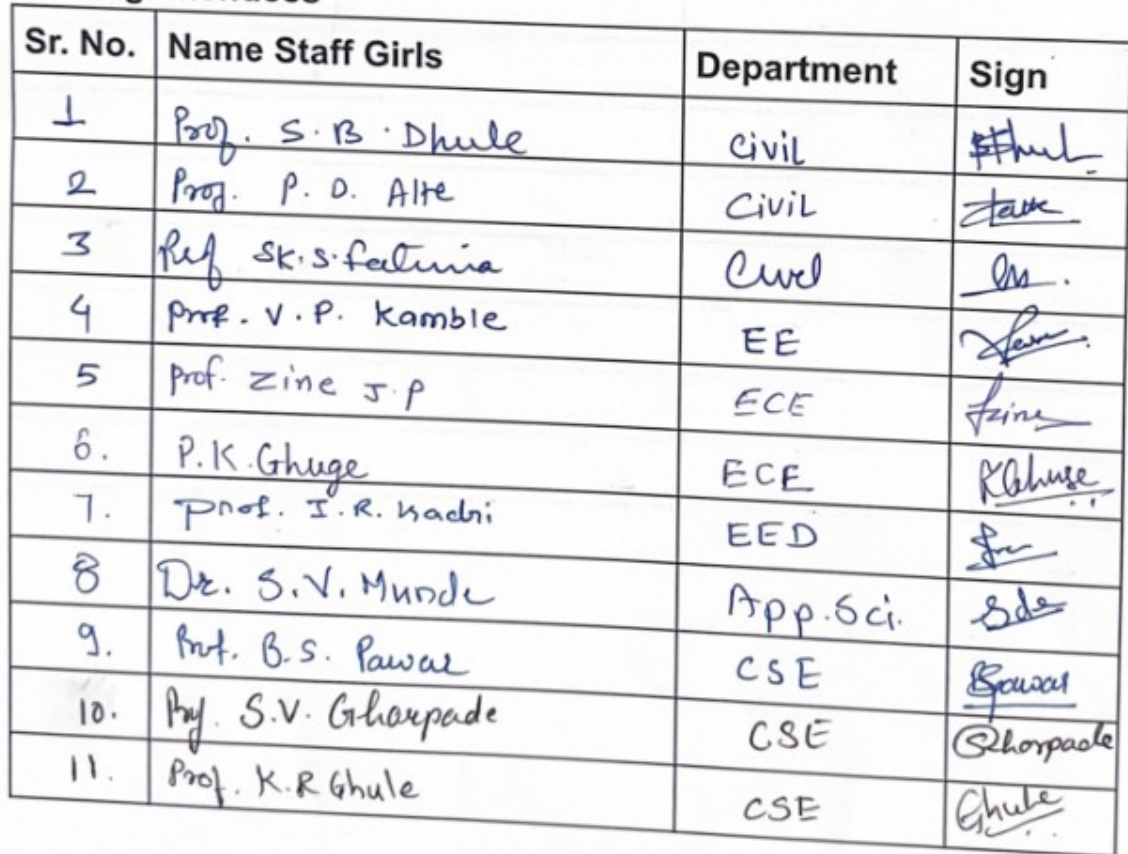 Sr. No. Name Staff Girls Department Sign
1 Prof. S. B. Dhule Civil
2 Prof. P. D. Alte Civil
3 Prof SK. S. fatima Civil
4 Prof. V. P. Kamble EE
5 Prof. Zine J. P ECE Jzine
6. P. K. Ghuge ECE KGhuge
7. Prof. I. R. Kadri EED
8 Dr. S. V. Munde App. Sci.
9. Prof. B. S. Pawar CSE BPawar
10. Prof. S. V. Ghorpade CSE Ghorpade
11. Prof. K. R Ghule CSE Ghule